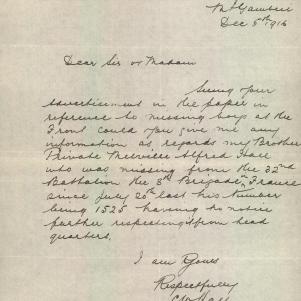 Mt Gambier
Dec 5th 1916
Dear Sir or Madam
Seeing your
advertisement in the paper in
reference to missing boys at the
Front could you give me any
information as regards my Brother
Private Melville Alfred Hall
who was missing from the 32nd
Battalion the 8th Brigade in France
since July 20th last his number
being 1525 having no notice
further respecting from head
quarters.
I am Yours
Respectfully
Hall